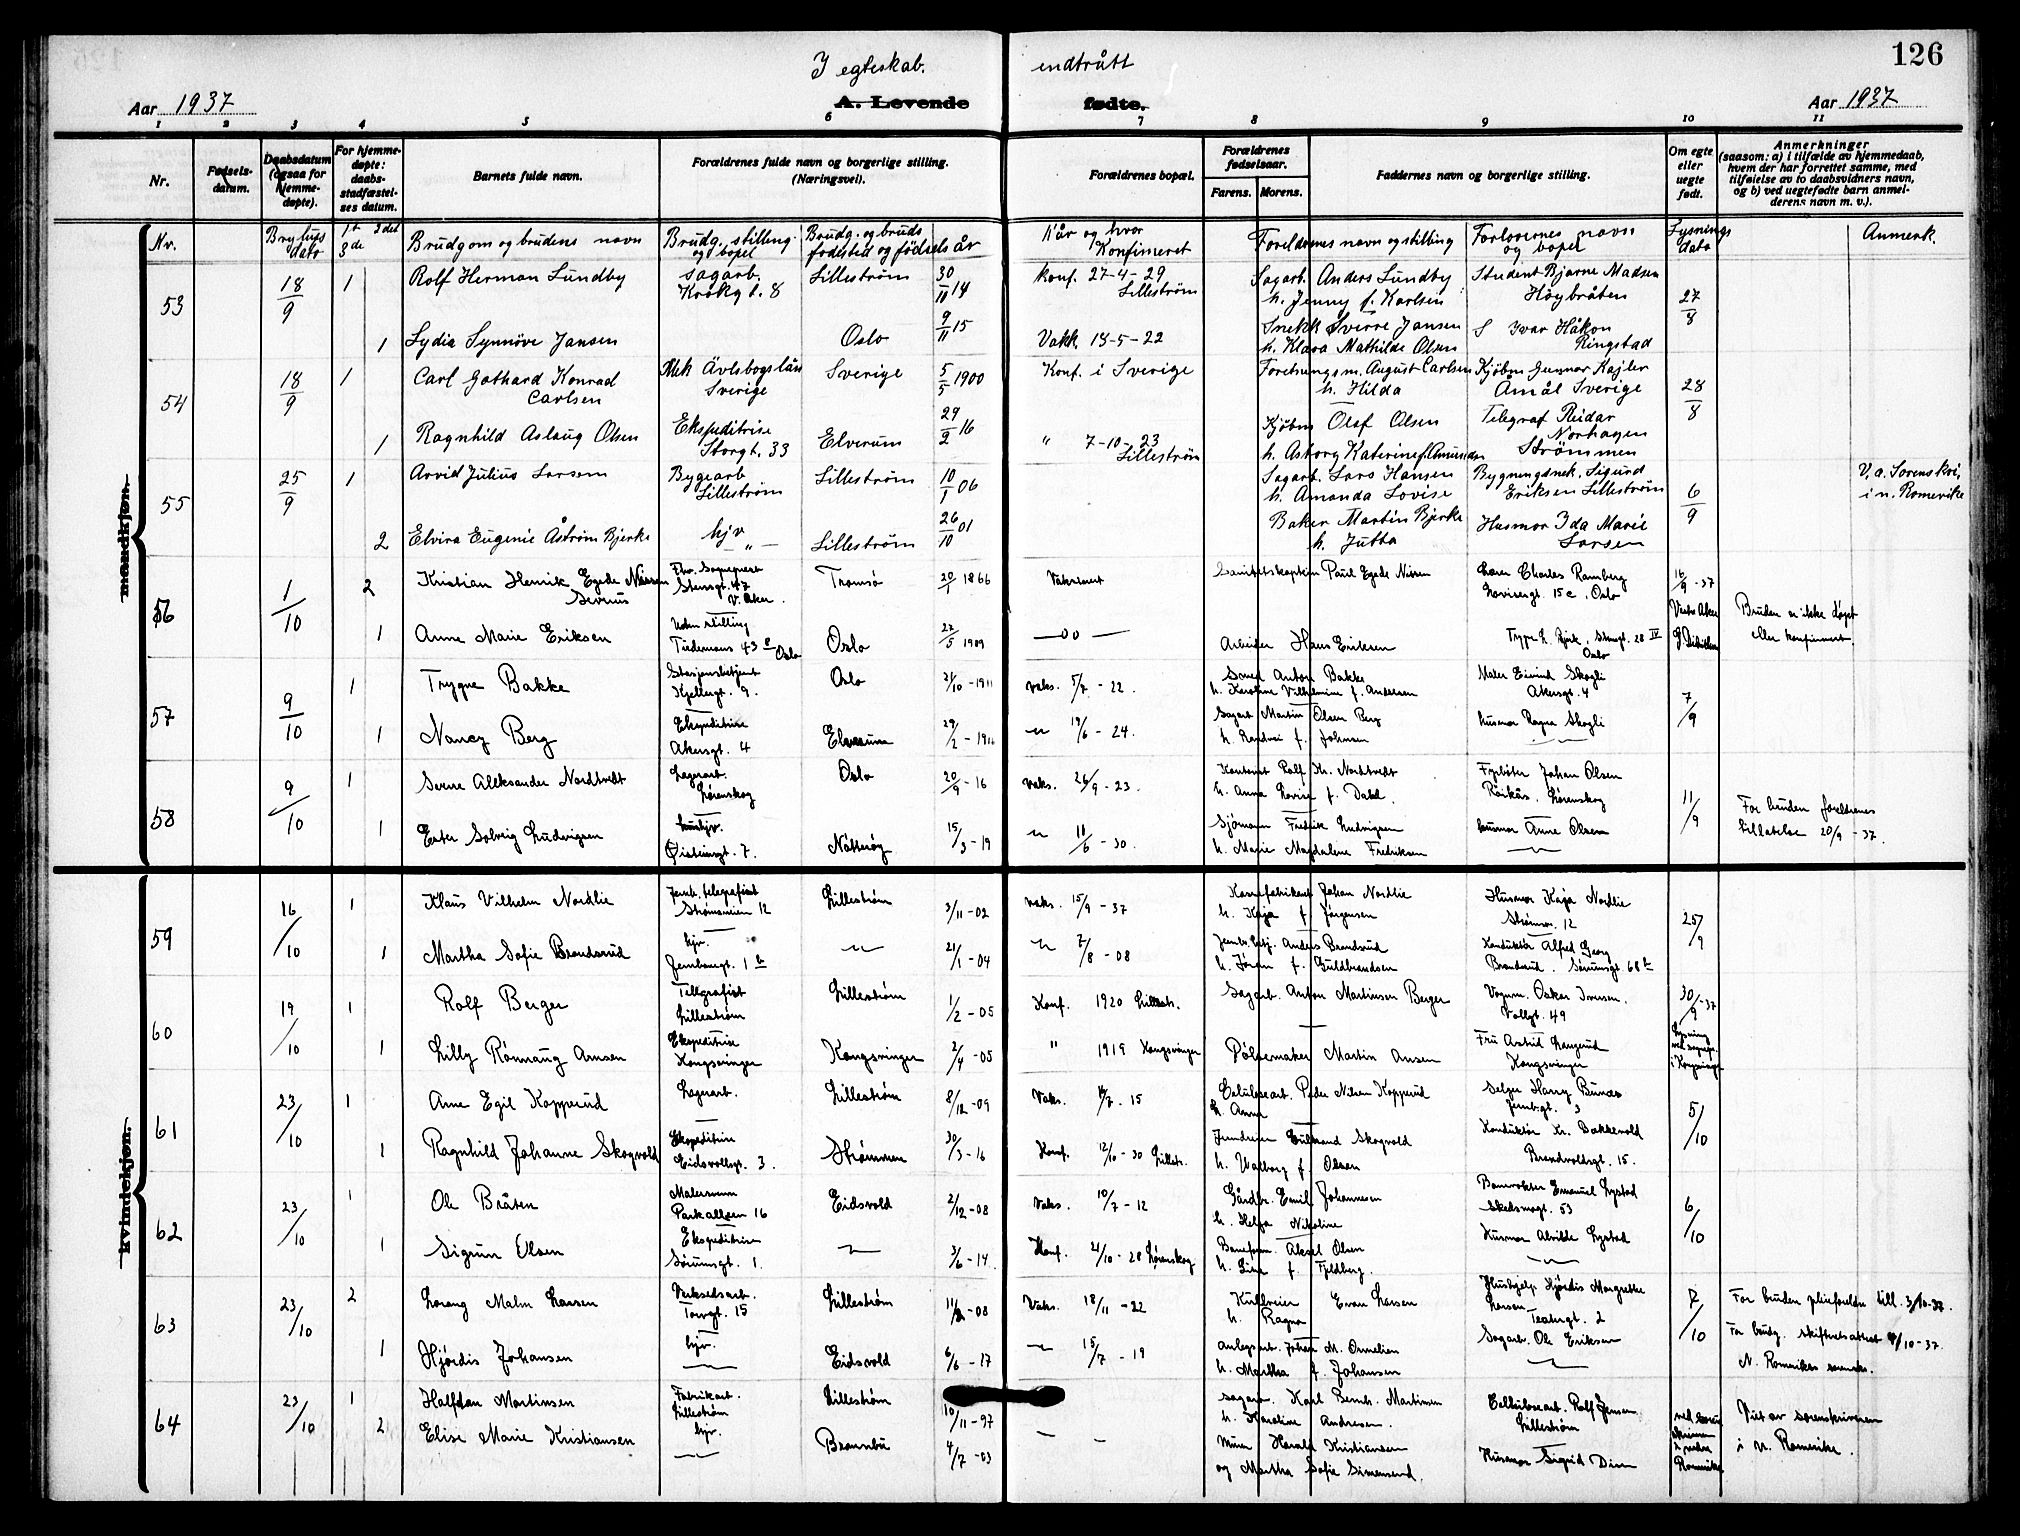 126
I egteskab. indtrått
Aar 1937 A. Levende fødte. Aar 1937
1 2 3 4 5 6 7 8 9 10 11
Nr.
Fødsels-datum.
Daabsdatum (ogsaa for hjemme-døpte).
For hjemme-døpte: daabs-stadfæstel-ses datum.
Barnets fulde navn.
Forældrenes fulde navn og borgerlige stilling. (Næringsvei).
Forældrenes bopæl.
Forældrenes fødselsaar. Farens. Morens.
Faddernes navn og borgerlige stilling.
Om egte eller uegte født.
Anmerkninger (saasom: a) i tilfælde av hjemmedaab, hvem der har forrettet samme, med tilføielse av to daabsvidners navn, og b) ved uegtefødte barn anmel-derens navn m. v.).
mandkjøn.
kvindekjøn.
Nr. Bryllups dato 1st 2det 3de Brudgom og brudens navn Brudg. stilling og bopel Brudg. og bruds fødested og fødsels år Når og hvor Konfirmeret Foreldrenes navn og stilling Forlovernes navn og bopel Lysnings dato Anmerk.
53 18/9 1 Rolf Herman Lundby Sagarb. Krokgt. 8 Lillestrøm 30/11 14 konf. 27-4-29 Lillestrøm Sagarb. Anders Lundby h. Jenny f. Karlsen Student Bjarne Madsen Høybråten 27/8
1 Lydia Synnøve Jansen Oslo 9/11 15 Vakk. 18-5-22 Snekk Sverre Jansen h. Klara Mathilde Olsen S Ivar Håkon Ringstad
54 18/9 1 Carl Gothard Konrad Carlsen Mek Ävlsbogslän Sverige Sverige 5/5 1900 Konf. i Sverige Foretningsm. August Carlsen h. Hilda Kjøbm Gunnar Kajler Åmål Sverige 28/8
1 Ragnhild Aslaug Olsen Ekspeditrise Storgt. 33 Elverum 29/2 16 " 7-10-23 Lillestrøm Kjøbm Olaf Olsen h. Asborg Katerine f. Amundsen Telegraf Reidar Norhagen Strømmen
55 25/9 1 Arvid Julius Larsen Bygearb Lillestrøm Lillestrøm 10/1 06 Sagarb. Lars Hansen h. Amanda Lovise Bygningsnek. Sigurd Eriksen Lillestrøm 6/9 V. a. Sorenskri. i n. Romerike
2 Elvira Eugenie Åstrøm Bjerke hjv — " — Lillestrøm 26/10 01 Baker Martin Bjerke h. Jutta Husmor Ida Marie Larsen
56 1/10 2 Kristian Henrik Egede Nissen Severus Fhv. Sogneprest Stensgt. 47 V. Aker Tromsø 20/1 1866 Sanitetskaptein Paul Egede Nissen Lærer Charles Ramberg Lovisergt. 15c, Oslo 16/9-37 Vestre Aker Bruden er ikke døpt eller konfirmert.
1 Anne Marie Eriksen Uden stilling Tidemans 43 Oslo Oslo 27/5 1909 —oo— Arbeider Hans Eriksen Oslo
57 9/10 1 Trygve Bakke Stasjonsbetjent Kjellergt. 9. Oslo 21/10-1911 Vaks. 5/7-22 Smed Anton Bakke h. Karoline Vilhelmine f. Andersen Maler Eivind Skogli Akersgt. 4 7/9
1 Nancy Berg Ekspeditrise Akersgt. 4 Elverum 29/2-1916 19/6-24. Sagarb Martin Olsen Berg h. Randine f. Johnsen husmor Ragna Skogli
58 9/10 1 Sverre Alleksander Nordtvedt Lagerarb. Lørenskog Oslo 20/9-16 Vaks. 26/9-23. Kontorist Rolf Kr. Nordtvedt h. Anna Lovise f. Dahl. Fyrbøter Johan Olsen Røikås. Lørenskog 11/9 For bruden foreldrenes tillatelse 20/9-37.
1 Ester Solveig Ludvigsen hushjv. Øisteinsgt. 7. Nøtterøy 15/3-19 11/6-30. Sjømann Fredrik Ludvigsen h. Marie Magdalene Fredriksen husmor Anne Olsen
59 16/10 1 Klaus Vilhelm Nordlie Jernb. telegrafist Strømsveien 12 Lillestrøm 3/11-02 Vaks. 15/9-37 Kassefabrikant Johan Nordlie h. Kaja f. Jørgensen Husmor Kaja Nordlie Strømsv. 12 25/9
1 Martha Sofie Brandsrud hjv. Jernbanegt. 1b 21/1-04 7/8-08 Jernb. betj. Anders Brandsrud h. Jøran f. Guldbrandsen Konduktør Alfred Georg Brandsrud. Sørumsgt 68b
60 19/10 1 Rolf Berger Telegrafist Lillestrøm Lillestrøm 1/2-05 Konf. 1920 Lillestr. Sagarb. Anton Martinsen Berger Vognm. Oskar Iversen. Vollgt. 49 30/9-37
1 Lilly Rønnaug Arnsen Ekspeditrise Kongsvinger Kongsvinger 2/4-05 " 1919 Kongsvinger Pølsemaker Martin Ansen Fru Astrid Langerud Kongsvinger Lysning ved sognepr. i Kongsvinger
61 23/10 1 Arne Egil Kopperud Lagerarb. Lillestrøm 8/12-09 Vaks. 7-15 Celluloseart. Peder Nilsen Kopperud h. Anna Selger Harry Bunæs Jernbgt. 3 5/10
1 Ragnhild Johanne Skogvold Ekspeditrise Eidsvollsgt. 3. Strømmen 30/3-16 Konf. 12/10-30 Lillestr. Gulbrand Skogvold h. Walborg f. Olsen Konduktør Kr. Bakkevold Brandvoldsgt. 15.
62 23/10 1 Ole Bråten Malersvenn Parkalleen 16 Eidsvold 2/12-08 Vaks. 10/7-12 Gårdbr. Emil Johannesen h. Helga Nikoline Banevokter Emanuel Lystad Skedsmogt. 53 6/10
1 Sigrun Olsen Ekspeditrise Sørumsgt. 1. 3/6-14. Konf. 21/10-28 Lørenskog Baneform. Aksel Olsen h. Lina f. Fjeldberg. Husmor Alvilde Lystad
63 23/10 2 Lorang Malm Larsen Verksedsarb. Torvgt. 15 Lillestrøm 11/2-08 Vaks. 18/11-22 Kullveier Evan Larsen h. Ragna Hushjelp Hjørdis Margrethe Larson Teatergt. 2 7/10 For bruden pleieforeldre till. 3/10-37.
1 Hjørdis Johansen hjv. Eidsvold 6/6-17 15/7-19 Anlegsarb. Johan M. Ornelien h. Martha f. Johansen Sagarb. Ole Eriksen For brudg. skifteattest 4/10-37. N. Romerikes sorensks.
64 23/10 1 Halfdan Martinsen Fabrikart. Lillestrøm Lillestrøm 10/11-97 Sagarb. Karl Bernh. Martinsen h. Karoline Andresen. Celluloseart. Rolf Jensen Lillestrøm ved soren skriveren i nedre Romerike Viet av sorenskriveren i N. Romerike.
2 Elise Marie Kristiansen hjv. Brannbu 4/7-03 Murer Harald Kristiansen og Martha Sofie Simensend. Husmor Sigrid Dim